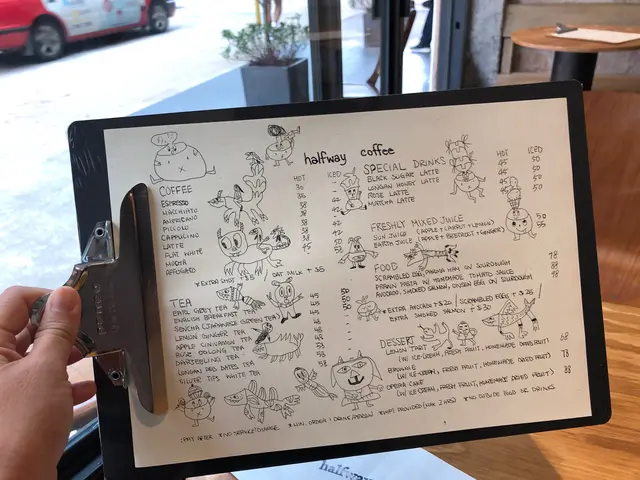 halfway coffee
COFFEE HOT ICED
ESPRESSO 30 -
MACCHIATO 35 -
AMERICANO 38 42
PICCOLO 38
CAPPUCINO 38 42
LATTE 38 42
FLAT WHITE 38
MOCHA 45 50
AFFOGATO
*EXTRA SHOT +$5 OAT MILK +$5
TEA
EARL GREY TEA 45
ENGLISH BREAKFAST TEA 45
SENCHA (JAPANESE GREEN TEA)
LEMON GINGER TEA
APPLE CINNAMON TEA
ROSE OOLONG TEA
DARJEELING TEA
LONGAN RED DATES TEA
SILVER TIPS WHITE TEA
SPECIAL DRINKS HOT ICED
BLACK SUGAR LATTE 45 50
LONGAN HONEY LATTE 45 50
ROSE LATTE 45 50
MATCHA LATTE 45 50
FRESHLY MIXED JUICE
SUN JUICE (APPLE+CARROT+LEMON) 50
EARTH JUICE (APPLE+BEETROOT+GINGER) 55
FOOD
SCRAMBLED EGG, PARMA HAM ON SOURDOUGH 78
PRAWN PASTA W/ HOMEMADE TOMATO SAUCE 78
AVOCADO, SMOKED SALMON, ONSEN EGG ON SOURDOUGH 88
*EXTRA AVOCADO +$20 / SCRAMBLED EGG +$25 /
EXTRA SMOKED SALMON +$30
DESSERT
LEMON TART 68
(W/ ICE-CREAM, FRESH FRUIT, HOMEMADE DRIED FRUIT)
BROWNIE 78
(W/ ICE-CREAM, FRESH FRUIT, HOMEMADE DRIED FRUIT)
OPERA CAKE 88
(W/ ICE-CREAM, FRESH FRUIT, HOMEMADE DRIED FRUIT)
*PAY AFTER *NO SERVICE CHARGE *MIN. ORDER 1 DRINK/PERSON *WIFI PROVIDED (MAX 2 HRS) *NO OUTSIDE FOOD OR DRINKS
halfway